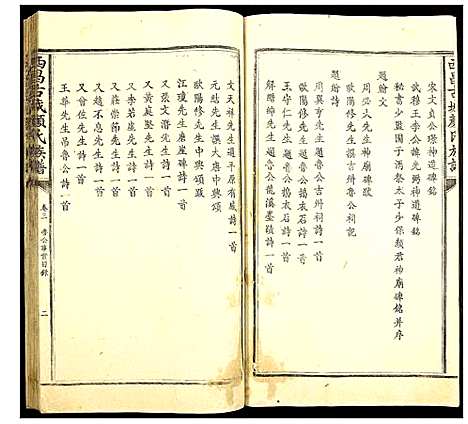 西昌古城顏氏族譜
宋文貞公璟神道碑銘
武雅王李公諱光弼神道碑銘
秘書少監國子馮祭太子少保顏君神廟碑銘并序
周必大先生廟碑跋
歐陽修先生魯公祠記
題贈文
題贈詩
周巽亨先生題魯公古辨祠詩一首
歐陽修先生題魯公搗衣石詩一首
王守仁先生題魯公搗衣石詩一首
解縉紳先生題魯公龍溪墨蹟詩一首
文天祥先生過平原有感詩一首
元結先生撰大唐中興頌
歐陽修先生中興頌跋
江瓊先生唐崖碑詩一首
又莊崇節先生詩一首
又黃庭堅先生詩一首
又李若虛先生詩一首
又趙不息先生詩一首
王華先生吊魯公詩一首
西昌古城顏氏族譜
卷三
二